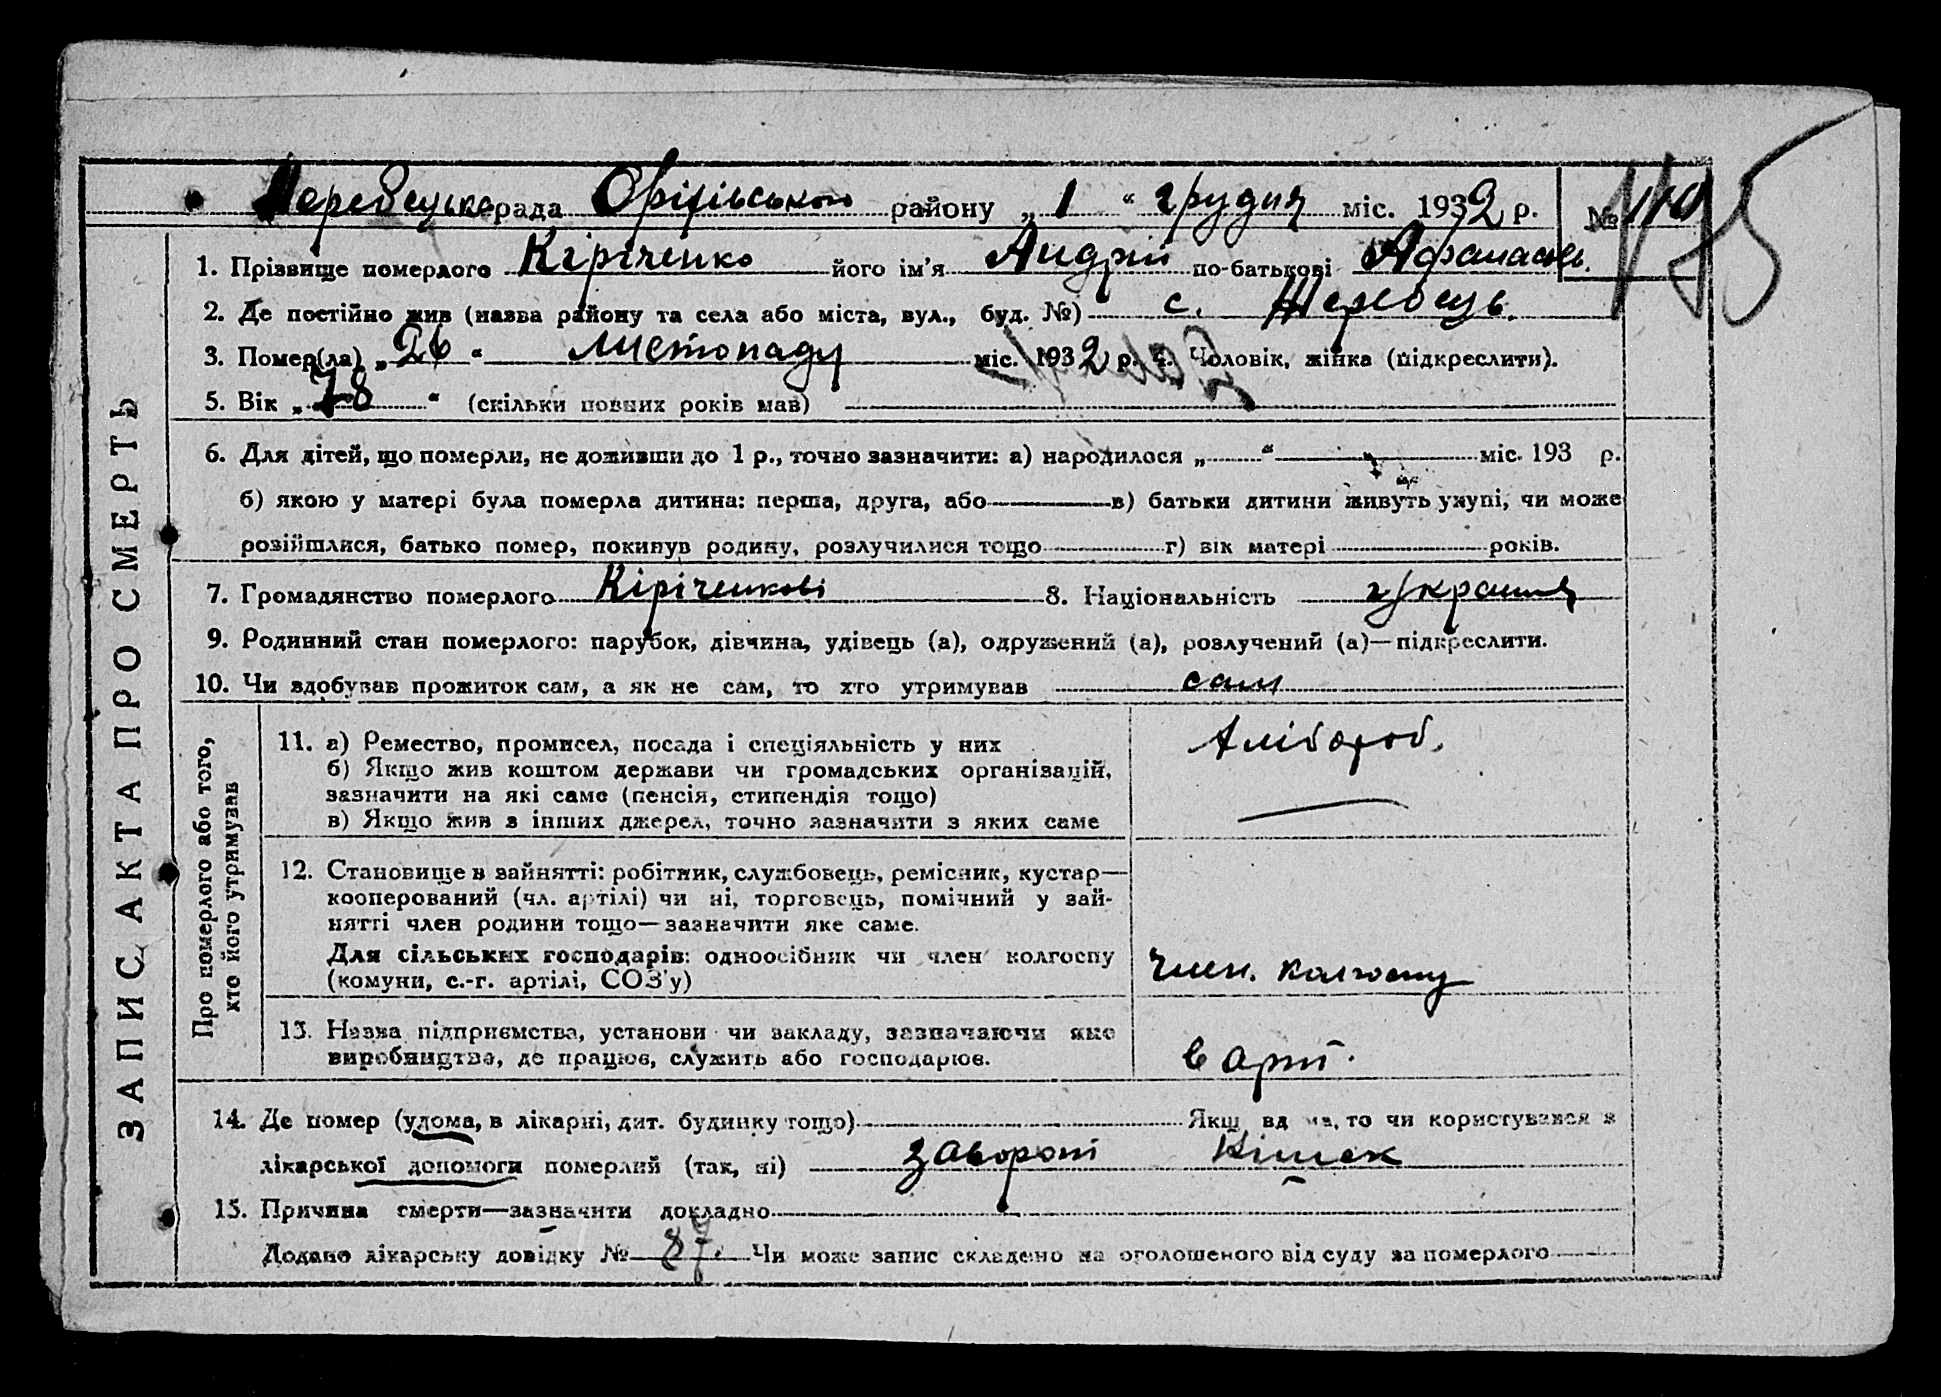 Жеребецька рада Оріхівського району „ 1 “ грудня міс. 1932 р. № 110
115
1. Прізвище померлого Кіріченко його ім’я Андрій по-батькові Афанасієв.
2. Де постійно жив (назва району та села або міста, вул., буд. №) с. Жеребець.
3. Помер(ла) „ 26 “ листопаду міс. 1932 р. 4. Чоловік, жінка (підкреслити).
5. Вік „ 78 “ (скільки повних років мав)
6. Для дітей, що померли, не доживши до 1 р., точно зазначити: а) народилося „ “ міс. 193 р.
б) якою у матері була померла дитина: перша, друга, або в) батьки дитини живуть укупі, чи може
розійшлися, батько помер, покинув родину, розлучилися тощо г) вік матері років.
7. Громадянство померлого Кіріченкові 8. Національність Украінец
9. Родинний стан померлого: парубок, дівчина, удівець (а), одружений (а), розлучений (а)—підкреслити.
10. Чи здобував прожиток сам, а як не сам, то хто утримував сам
ЗАПИС АКТА ПРО СМЕРТЬ
Про померлого або того,
хто його утримував
11. а) Ремество, промисел, посада і спеціяльність у них Хлібороб.
б) Якщо жив коштом держави чи громадських організацій,
зазначити на які саме (пенсія, стипендія тощо)
в) Якщо жив з інших джерел, точно зазначити з яких саме
12. Становище в зайнятті: робітник, службовець, ремісник, кустар—
кооперований (чл. артілі) чи ні, торговець, помічний у зай-
нятті член родини тощо—зазначити яке саме.
Для сільських господарів: одноосібник чи член колгоспу
(комуни, с.-г. артілі, СОЗ’у) член. колгоспу
13. Назва підприємства, установи чи закладу, зазначаючи яке
виробництво, де працює, служить або господарює. в арт.
14. Де помер (удома, в лікарні, дит. будинку тощо) Якщ вд ма, то чи користувався з
лікарської допомоги померлий (так, ні) заворот Кішек
15. Причина смерти—зазначити докладно
Додано лікарську довідку № 87. Чи може запис складено на оголошеного від суду за померлого